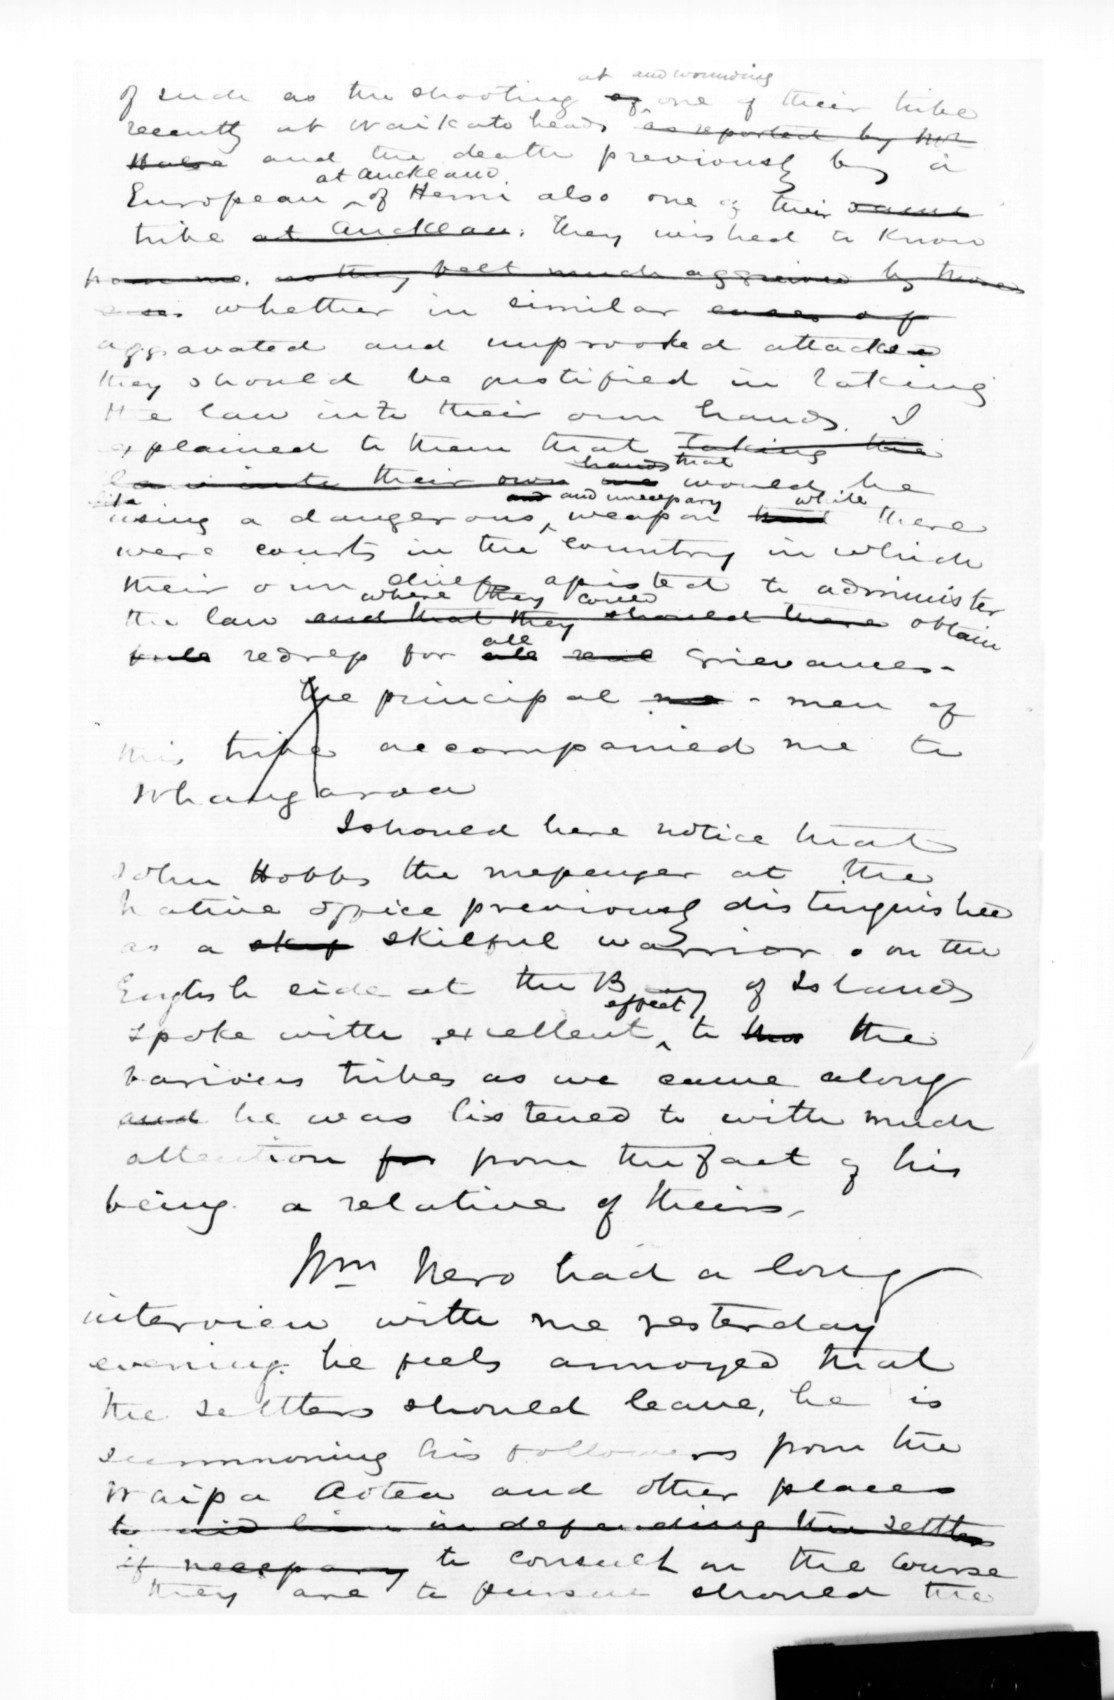 of such as the shooting at and wounding of one of their tribe
recently at Waikato heads as reported by Mr
and the death previously by a
European at Auckland of Hemi also one of their same
tribe at Auckland. They wished to know
from me. as they felt much aggrieved by these
whether in similar cases of
aggravated and unprovoked attacks
they should be justified in taking
the law into their own hands. I
explained to them that taking the
law into their own hands that would be
like using a dangerous and and unnecessary weapon that while there
were courts in the country in which
their own chiefs assisted to administer
the law and that they should there where they could obtain
full redress for all all real grievances -
The principal me - men of
this tribe accompanied me to
Whangaroa
I should here notice that
John Hobbs the messenger at the
Native Office previously distinguished
as a skilful warrior on the
English side at the Bay of Islands
spoke with excellent effect to the
various tribes as we came along
and he was listened to with much
attention for from the fact of his
being a relative of theirs.
Wm Nero had a long
interview with me yesterday
evening. he feels annoyed that
the settlers should leave, he is
summoning his followers from the
Waipa Aotea and other places
to aid him in defending the settlers
if necessary to consult on the course
they are to pursue should the